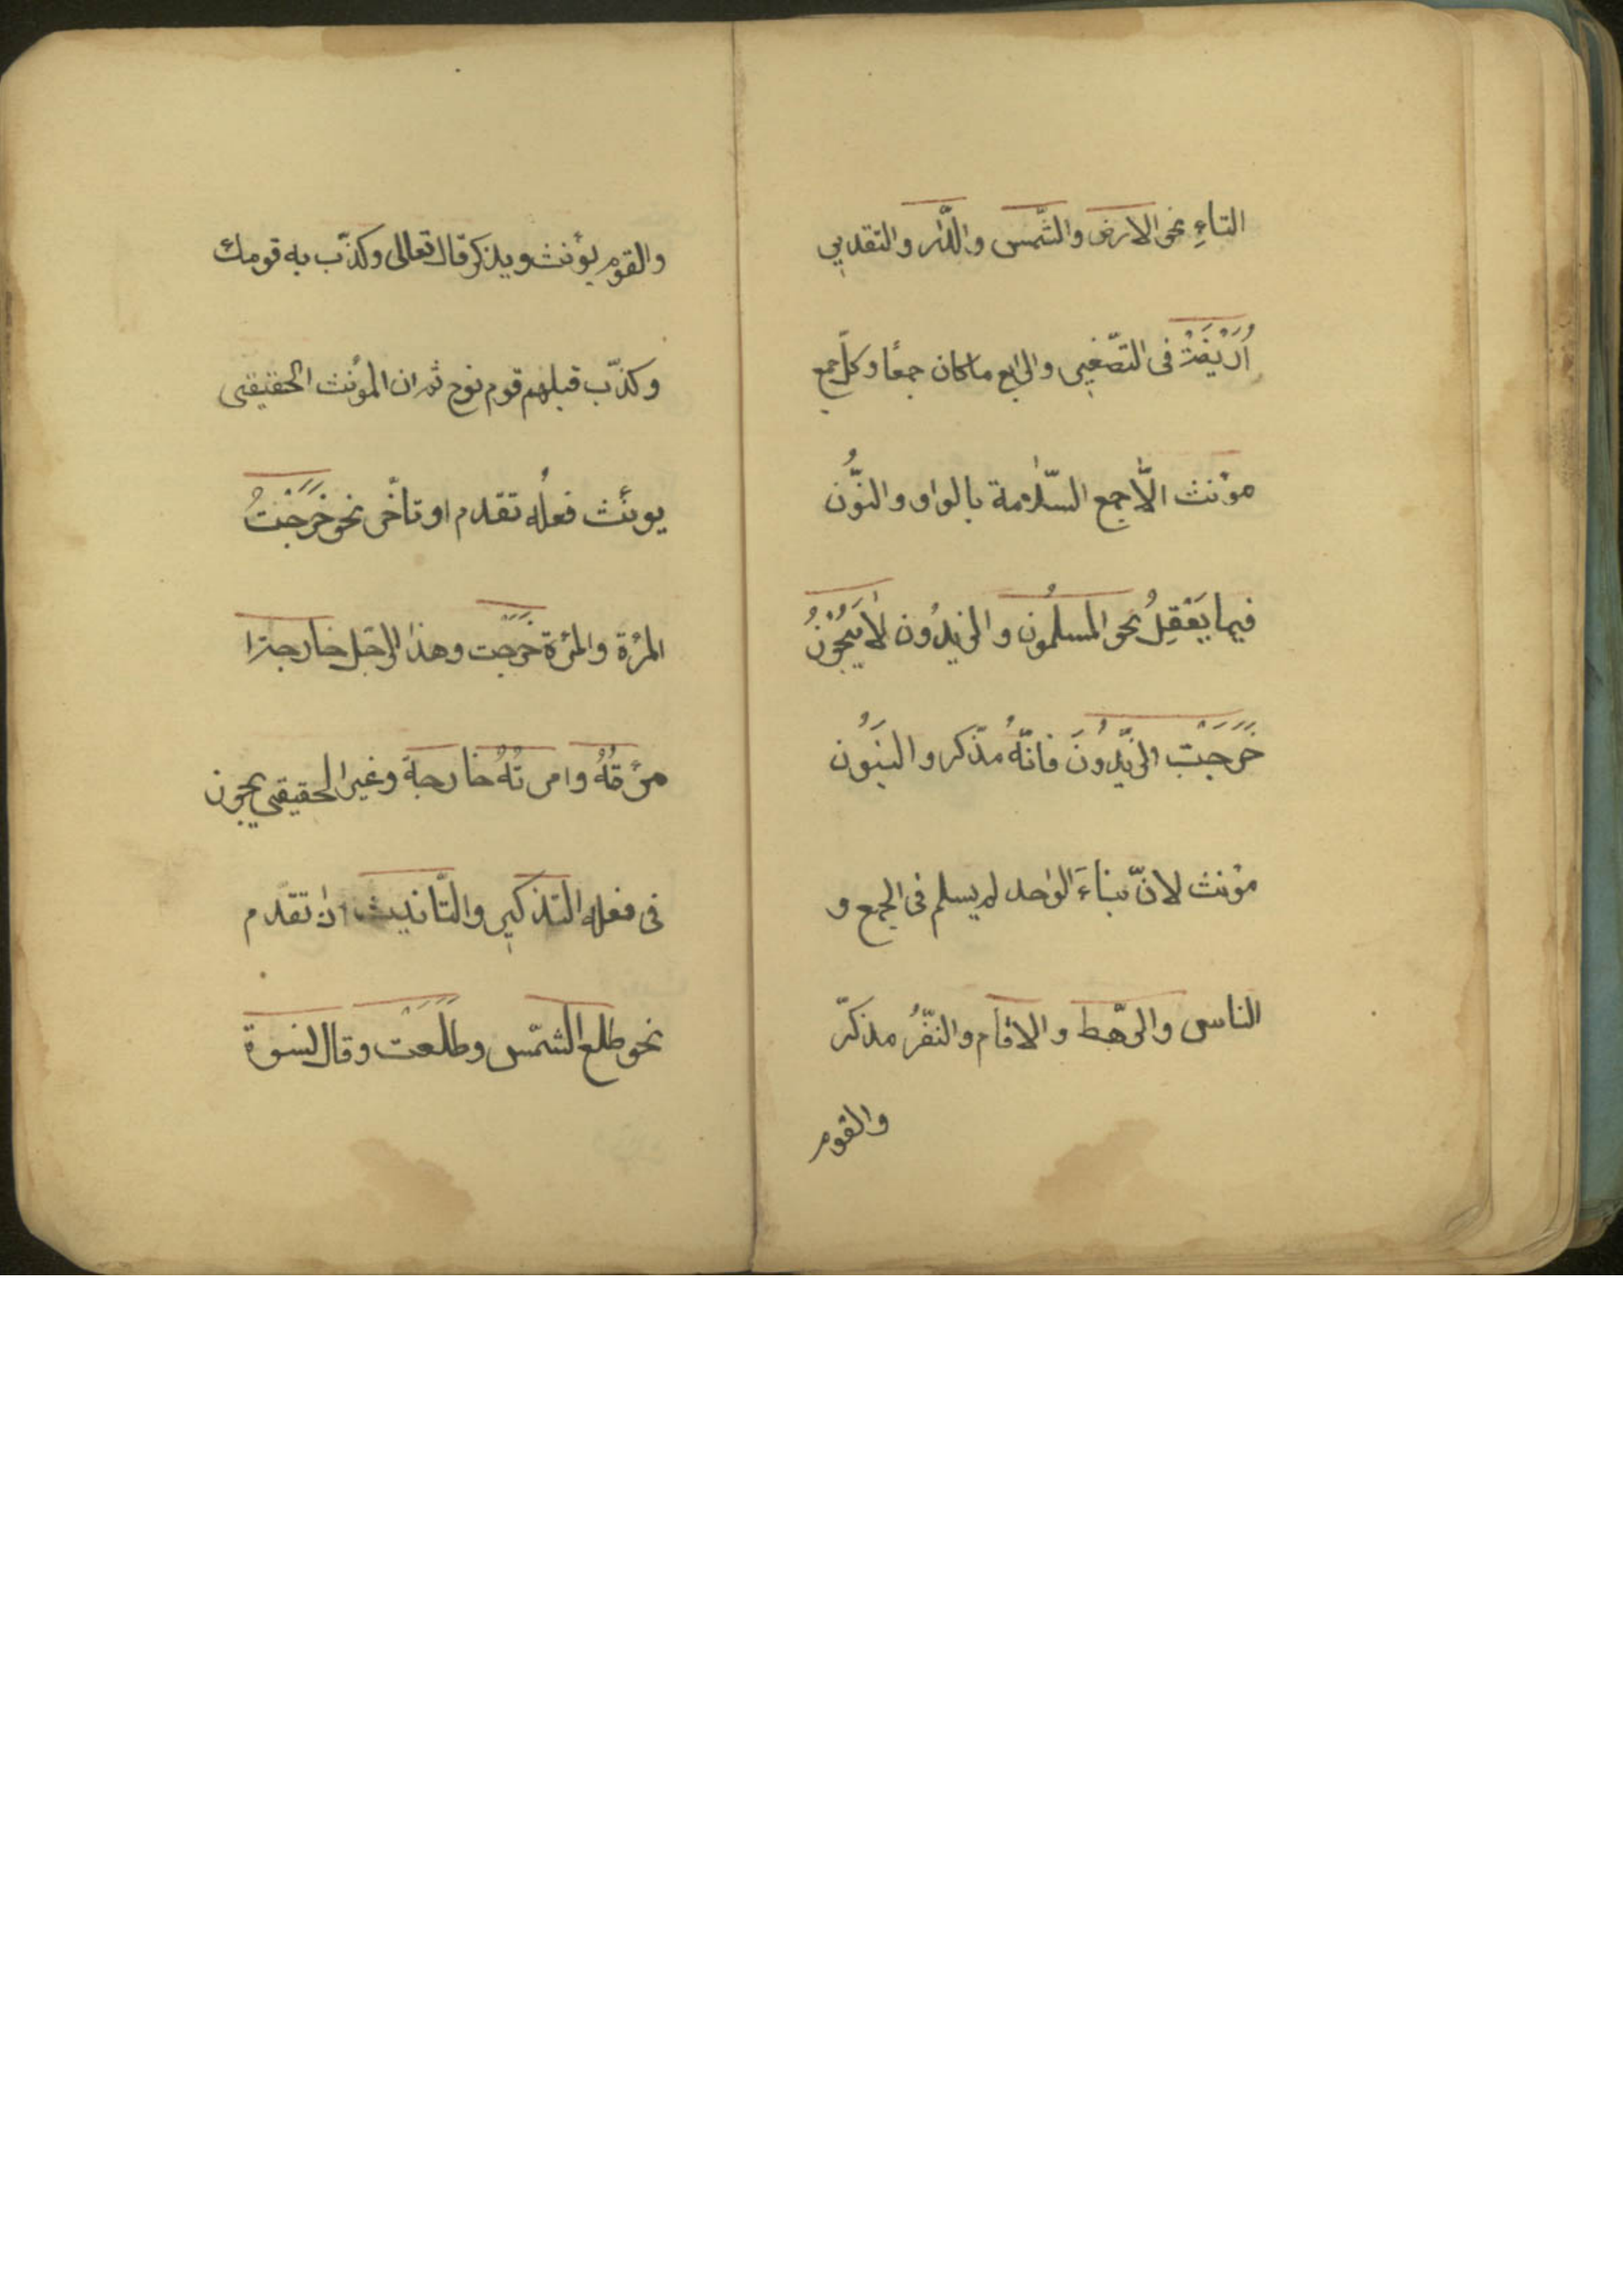 التاءِ نحو الارض والشّمس والدّار والتقدير
اُرَيْضَةْ فى التصّغير والرابع ماكان جمعًا وكلّ جمع
مؤنث الّا جمع السّلامة بالواو والنُّون
فيما يَعْقِلُ نحو المسلمُون والزيدُون لا يَجُوْزُ
خَرَجَتْ الزيّدُونَ فانّهُ مذّكر والبنَوُن
مؤنث لانّ بناءَ الواحد لم يسلم فى الجمع و
الناس والرهّط والانام والنفّرُ مذكرّ
والقوم
والقوم يؤنث ويذكر قال تعالى وكذّب به قومك
وكذّب قبلهم قوم نوح ثم ان المؤنث الحقيقى
يؤنث فعلُه تقدم او تاخّر نحو خَرَجَتْ
المرْءة والمرْءة خَرَجَت وهذا الرجَل خارجة
وامرتُهُ خارجة وغير الحقيقى يجوز
فى فعله التذكير والتّانيث ان تقدّم
نحو طلع الشمّس وطلَعَت وقال نسوة